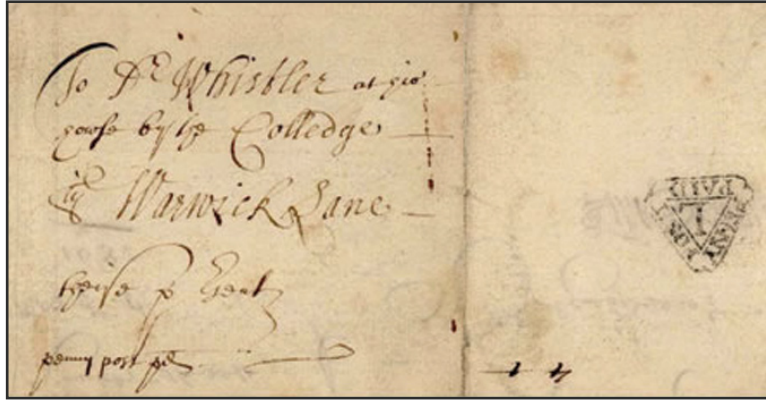 To Dr Whistler at his
howse by the Colledge
in Warwick Lane
these p
penny post pd
PENNY POST PAID
L